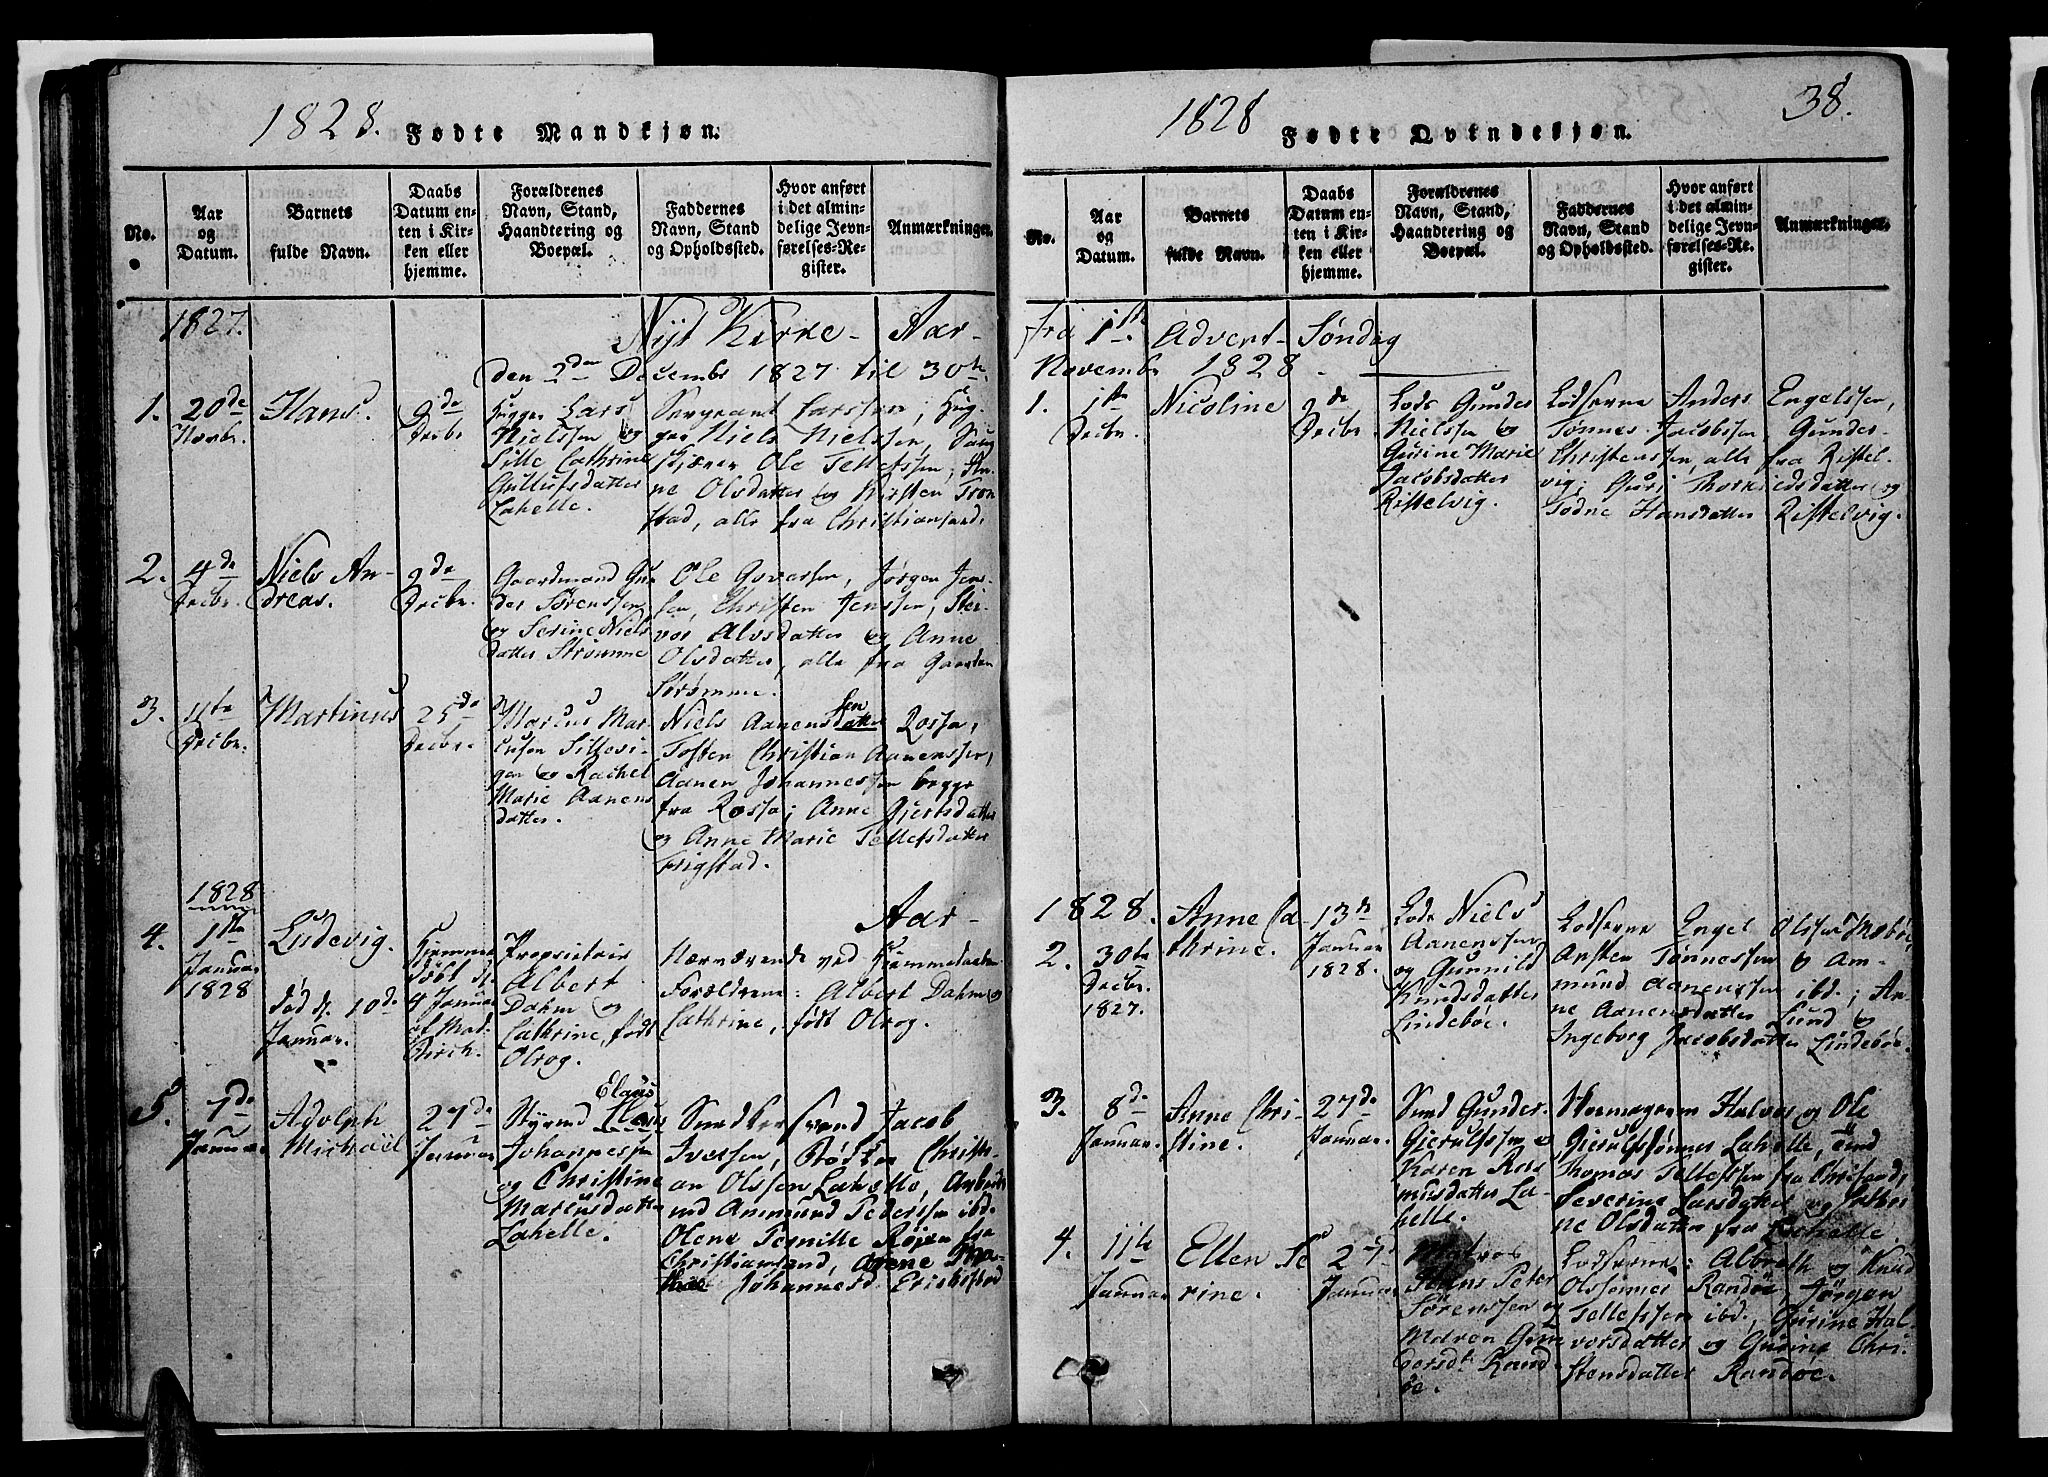 1828. Fødte Mandkjøn.
No.
Aar
og
Datum.
Barnets
fulde Navn.
Daabs
Datum en-
ten i Kir-
ken eller
hjemme.
Forældrenes
Navn, Stand,
Haandtering og
Boepæl.
Faddernes
Navn, Stand
og Opholdssted.
Hvor anført
i det almin-
delige Jevn-
førelses-Re-
gister.
Anmærkninger.
1827.
Nyt Kirke- Aar-
den 2den Decembr 1827 til 30te
1.
20de
Novbr.
Hans.
2de
Decbr.
Lars
Nielssen og
Sille Cathrine
Gullufsdatter
Lahelle.
Sergeant Larssen,
Niels Nielssen,
Ole Tellefssen, An-
ne Olsdatter og Kirsten Tron
stad, alle fra Christiansand.
2.
4de
Decbr.
Niels An-
dreas.
2de
Decbr.
Gaardmand Gun
der Sørenssen
og Serine Niels
datter Strømme
Ole Jørgen Jens-
sen, Christen Jenssen, Sti-
vor Alvsdatter og Anne
Olsdatter, alle fra Gaarden
Strømme.
3.
11te
Decbr.
Martinus
25de
Decbr.
Marcus Mar-
cusen Sillevi-
gen og Rachel
Marie Aanens
datter.
Niels Aanensdatter sen Rossø,
Tosten Christian Aanenssen,
Aanen Johannessen begge
fra Rossø; Anne Gjertsdatter
og Anne Marie Tellefsdatter
Frigstad.
1828 Aar-
4.
1ste
Januar
1828
Ludevig.
død d. 10de
Januar.
Hjemme
døbt d.
4 Januar
af Mad.
Birch.
Proprietair
Albert
Dahm og
Cathrine, født
Olrog.
Nærværende ved Hjemmedaaben
Forældrene: Albert Dahm og
Cathrine, født Olrog.
5.
7de
Januar
Adolph
Michaël
27de
Januar
Styrmd Claus
Elaus
Johannessen
og Christine
Marcusdatter
Lahelle.
Jacob
Iversen, Christi-
an Olssen Lahelle, Arbeids
md Ammund Pederssen ibd.
Olene Pernille fra
Christiansand,
Johannesd. Eriksstad
1828 Fødte Qvindekjøn. 38.
No.
Aar
og
Datum.
Barnets
fulde Navn.
Daabs
Datum en-
ten i Kir-
ken eller
hjemme.
Forældrenes
Navn, Stand,
Haandtering og
Boepæl.
Faddernes
Navn, Stand
og Opholdssted.
Hvor anført
i det almin-
delige Jevn-
førelses-Re-
gister.
Anmærkninger.
fra 1ste Advent- Søndag
Novembr 1828.
1.
1ste
Decbr.
Nicoline
2de
Decbr.
Lods Gunder
Nielssen og
Gurine Marie
Jacobsdatter
Ristelvig.
Lodserne Anders Engelssen,
Tønnes Jacobssen, Gunder
Christenssen, alle fra Ristel-
vig; Guri Thorkiedsdatter og
Todne Hansdatter Ristelvig.
1828.
2.
30te
Decbr.
1827.
Anne Ca-
thrine.
13de
Januar
1828.
Lods Niels
Aanenssen
og Gunnild
Knudsdatter
Lindebøe.
Lodserne Engel Olssen
Aasten Tønnessen & Am-
mund Aanenssen ibd.; An-
ne Aanensdatter Lund og
Ingeborg Jacobsdatter Lindebøe.
3.
8de
Januar.
Anne Chri-
stine.
27de
Januar.
Smed Gunder
Gjerulfssen og
Karen Ras
musdatter La-
helle.
Halvor og Ole
Gjerulfsønner Lahelle,
Thomas Tellefssen fra Chrsand,
Severine Larsdatter og
ne Olsdatter fra Lahelle.
4.
11te
Januar
Ellen Se
rine.
27
Januar
Matros
Hans Peter
Sørenssen og
Maren Gun
dersdt. Rand
øe.
Lodserne: Albreth og Knud
Olssønner Randøe, Jørgen
Tellefssen ibd., Gurine Hal
vorsdatter og Gurine Chri-
stensdatter Randøe.